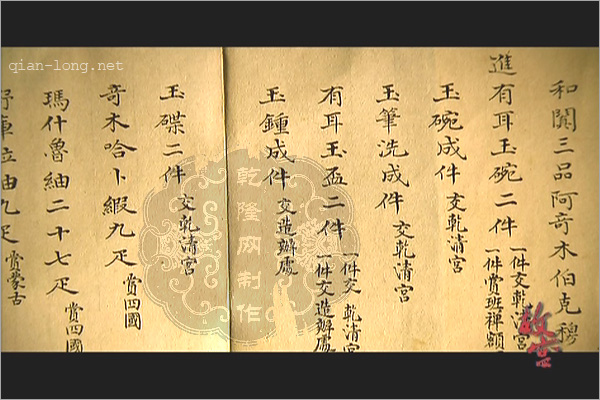 qian-long.net
和闐三品阿奇木伯克穆
進有耳玉碗二件
一件交乾清宮
一件賞班禪額
玉碗成件 交乾清宮
玉筆洗成件 交乾清宮
有耳玉盃二件
一件交 乾清宮
一件交造辦處
玉鍾成件 交造辦處
玉碟二件 交乾清宮
奇木哈卜緞九疋 賞四國
瑪什魯紬二十七疋 賞四國
庫拉紬九疋 賞蒙古
乾隆网制作
故宫